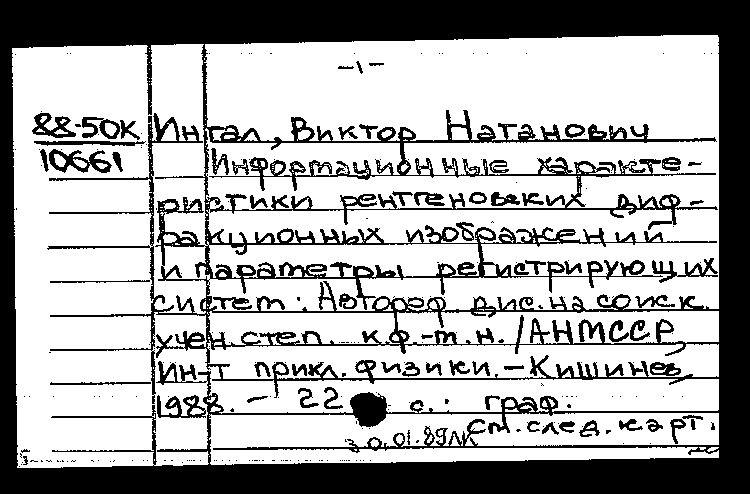 -1-
88-50К Ингал, Виктор Натанович
10661 Информационные характе-
ристики рентгеновских диф-
ракционных изображений
и параметры регистрирующих
систем: Автореф дис. на соиск.
учен. степ. к.ф.-т.н. /АН МССР,
Ин-т прикл. физики. - Кишинев,
1988. - 22 с.: граф.
См. след. карт.
30.01.89 ЛК